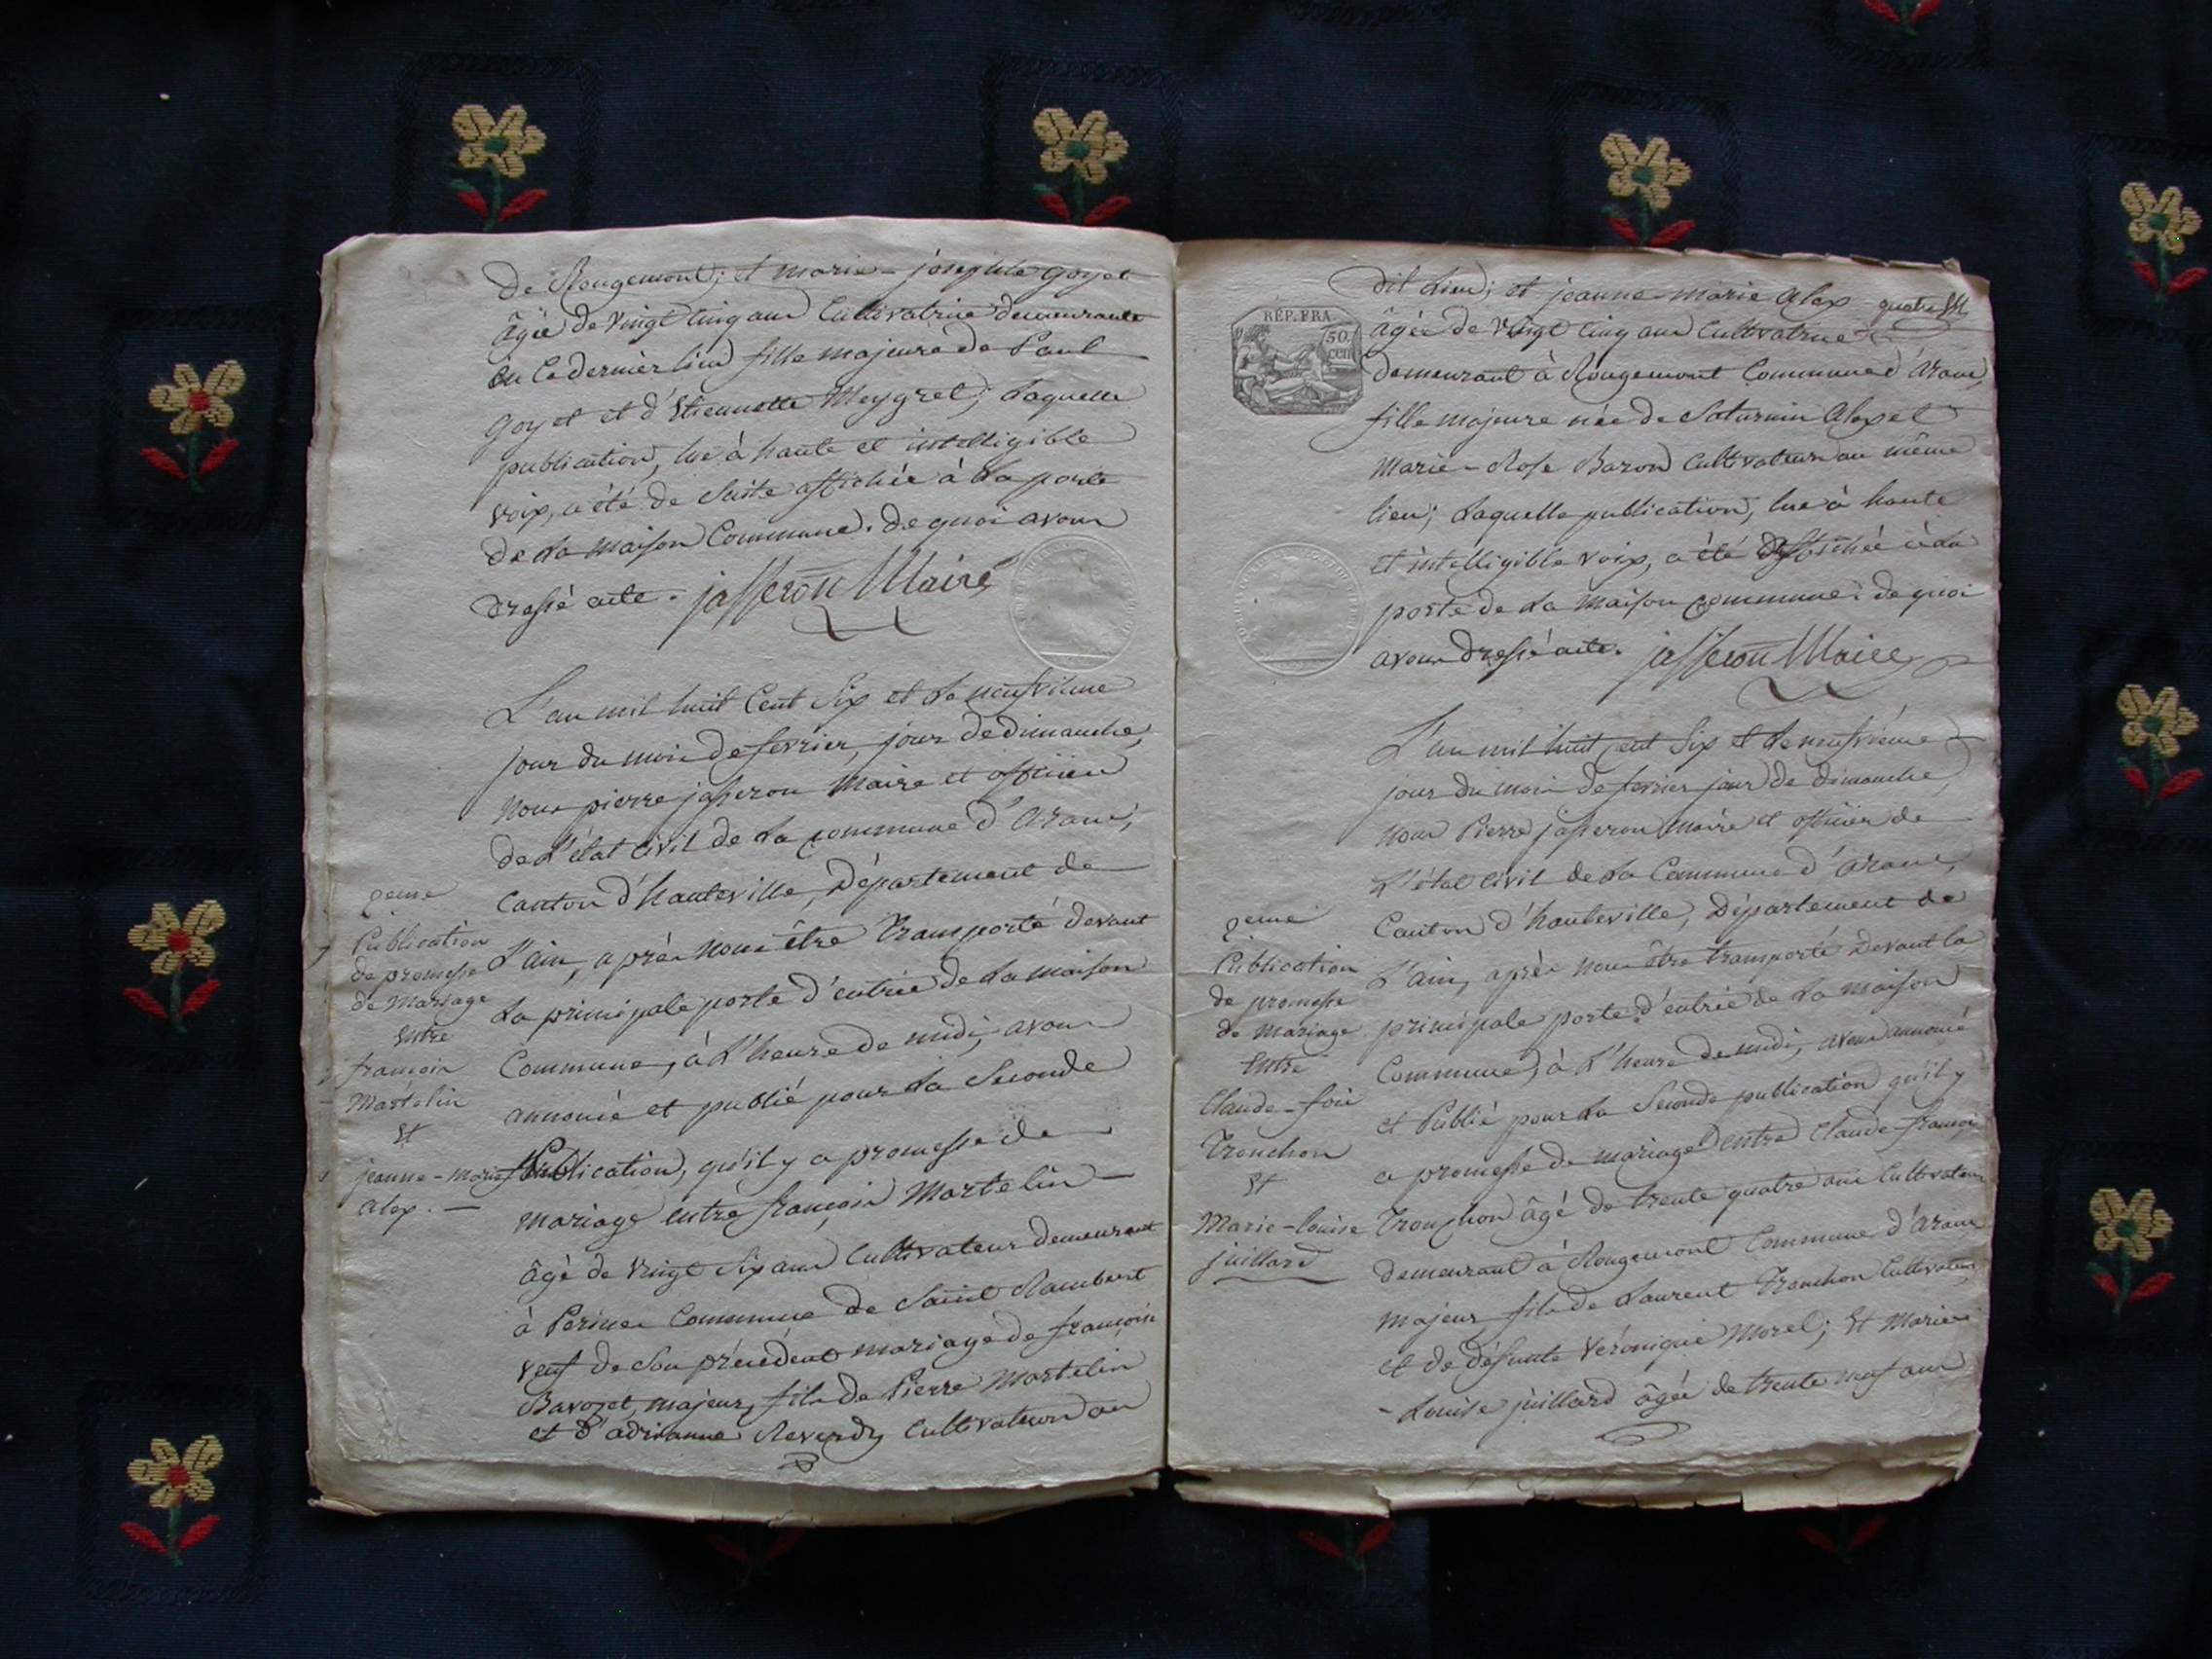 de Rougemont; et marie-josephte goyet
âgée de vingt cinq ans Cultivatrice demeurante
en ce dernier lieu fille majeure de Paul
goyet et d'Etiennette Meygret; Laquelle
publication, lue à haute et intelligible
voix, a été de suite affichée à La porte
de La maison Commune. de quoi avons
dressé acte. jasseron Maire
L'an mil huit Cent Six et Le neufvieme
jour du mois de fevrier, jour de dimanche,
Nous pierre jasseron Maire et officier
de L'état civil de La commune d'Aranc,
Canton d'hauteville, Département de
L'ain, après nous être transporté devant
La principale porte d'entrée de La maison
Commune, à L'heure de midi, avons
annoncé et publié pour La Seconde
Publication, qu'il y a promesse de
mariage entre françois Martelin
âgé de vingt Six ans Cultivateur demeurant
à Commune de Saint Rambert
veuf de Son précédent mariage de françoise
Bavozet, majeur, fils de Pierre Martelin
et d'adrianne Reverdy Cultivateurs au
2eme
Publication
de promesse
de Mariage
Entre
françois
Martelin
Et
jeanne-marie
alex.
REP. FRA.
50.
cen.
dit Lieu; et jeanne-marie alex quatre
âgée de Vingt Cinq ans Cultivatrice
demeurant à Rougemont Commune d'Aranc,
fille majeure née de Saturnin Alex et
Marie-Rose Baron Cultivateurs au même
lieu; Laquelle publication, lue à haute
et intelligible voix, a été affichée à La
porte de La maison commune: de quoi
avons dressé acte. jasseron Maire
L'an mil huit cent Six et Le neufvième
jour du mois de fevrier jour de dimanche,
Nous Pierre jasseron maire et officier de
L'état Civil de La Commune d'Aranc,
Canton d'hauteville, Département de
L'ain, après nous être transporté devant la
principale porte d'entrée de La maison
Commune, à L'heure de midi, avons annoncé
et Publié pour La Seconde publication qu'il y
a promesse de mariage entre Claude françois
Tronchon âgé de trente quatre ans Cultivateur
demeurant à Rougemont Commune d'Aranc
majeur fils de Laurent Tronchon Cultivateur
et de défunte Véronique Morel; Et Marie
-Louise juillard âgée de trente neuf ans
2eme
Publication
de promesse
de mariage
Entre
Claude-fois
Tronchon
Et
Marie-louise
juillard